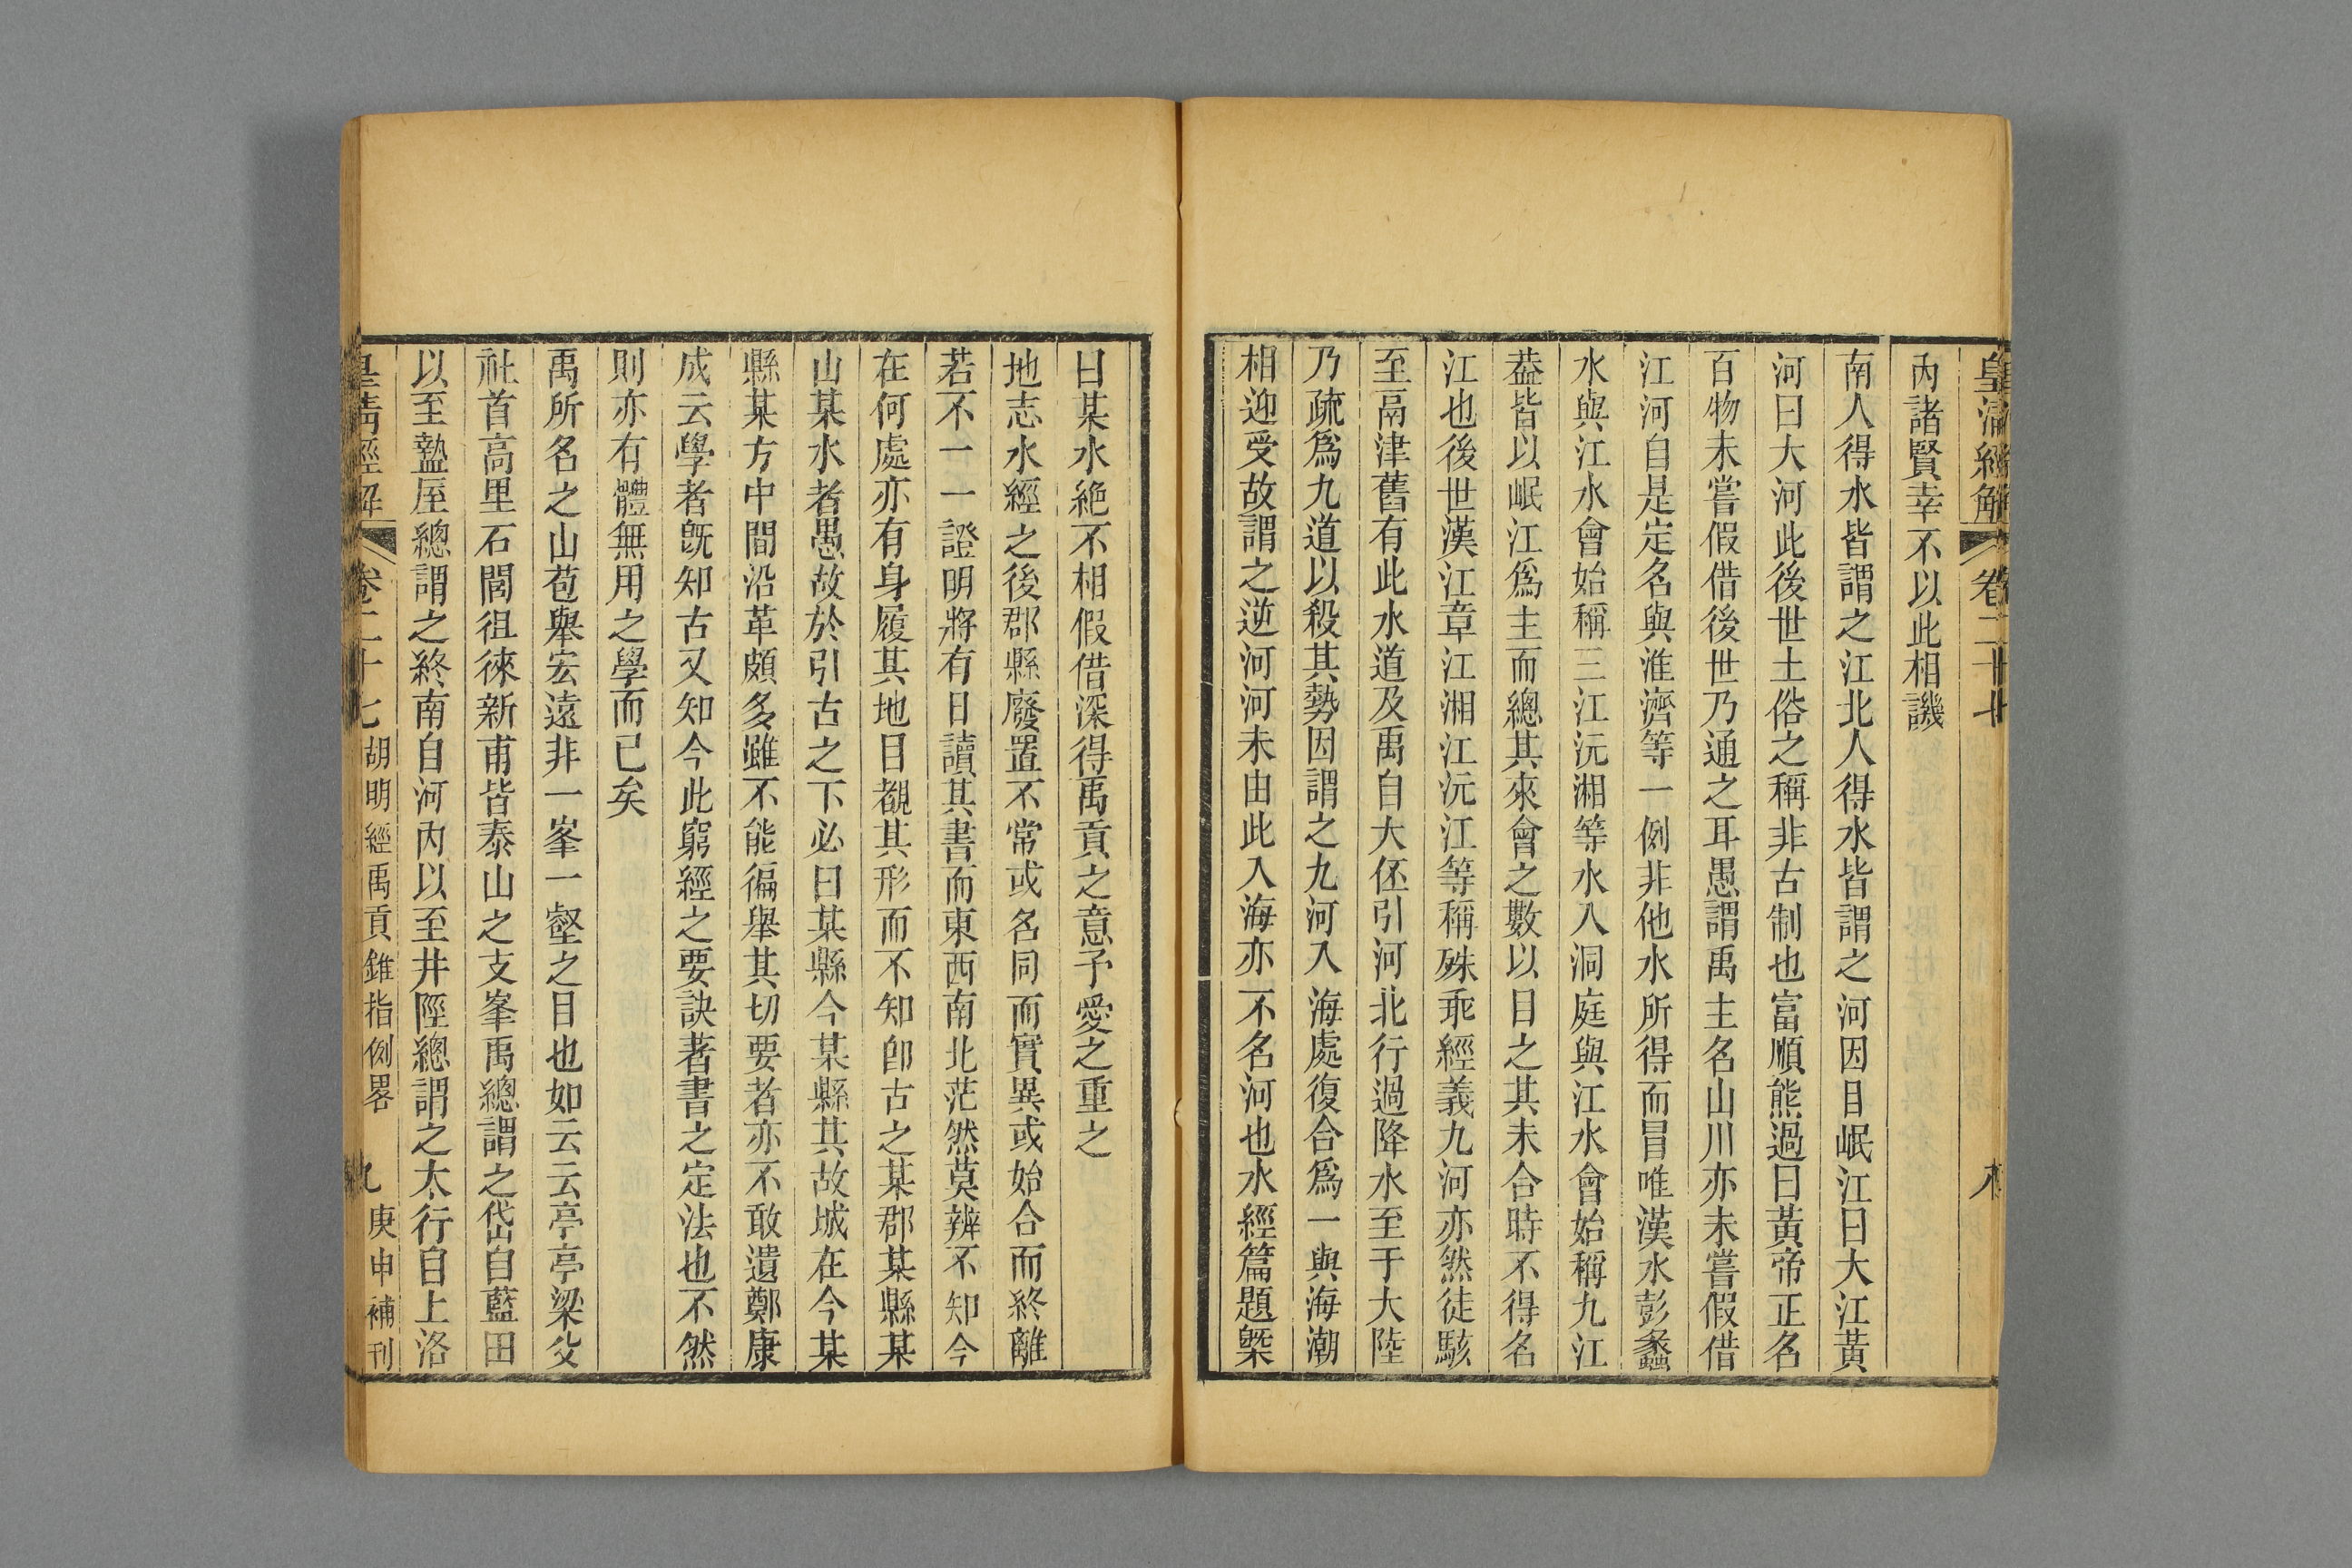 皇清經解 卷二十七 八
內諸賢幸不以此相譏
南人得水皆謂之江北人得水皆謂之河因目岷江曰大江黃
河曰大河此後世土俗之稱非古制也富順熊過曰黃帝正名
百物未嘗假借後世乃通之耳愚謂禹主名山川亦未嘗假借
江河自是定名與淮濟等一例非他水所得而冒唯漢水彭蠡
水與江水會始稱三江沅湘等水入洞庭與江水會始稱九江
葢皆以岷江爲主而總其來會之數以目之其未合時不得名
江也後世漢江章江湘江沅江等稱殊乖經義九河亦然徒駭
至鬲津舊有此水道及禹自大伾引河北行過降水至于大陸
乃疏爲九道以殺其勢因謂之九河入海處復合爲一與海潮
相迎受故謂之逆河河未由此入海亦不名河也水經篇題槩
曰某水絶不相假借深得禹貢之意予愛之重之
地志水經之後郡縣廢置不常或名同而實異或始合而終離
若不一一證明將有日讀其書而東西南北茫然莫辨不知今
在何處亦有身履其地目覩其形而不知卽古之某郡某縣某
山某水者愚故於引古之下必曰某縣今某縣其故城在今某
縣某方中間沿革頗多雖不能徧舉其切要者亦不敢遺鄭康
成云學者旣知古又知今此窮經之要訣著書之定法也不然
則亦有體無用之學而已矣
禹所名之山苞舉宏遠非一峯一壑之目也如云云亭亭梁父
社首高里石閭徂徠新甫皆泰山之支峯禹總謂之岱自藍田
以至盩厔總謂之終南自河內以至井陘總謂之太行自上洛
皇清經解 卷二十七 胡明經禹貢錐指例畧 九 庚申補刊